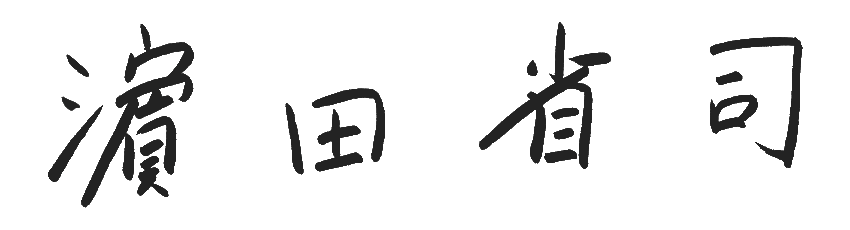 濵田省司